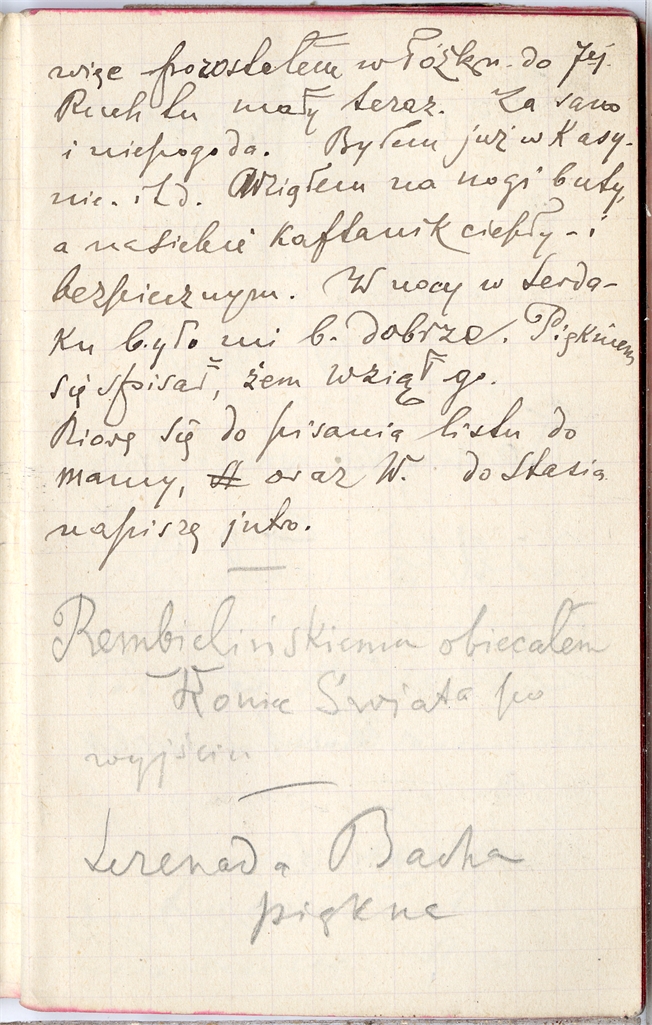 więc pozostałem w łóżku do 7ej.
Ruch tu mały teraz. Za
i niepogoda. Byłem już w Kasy-
nie. i t d. Wziąłem na nogi buty,
a na siebie kaftanik ciepły – i
bezpiecznym. W nocy w Serda-
ku było mi b. dobrze. Piękniem
się spisał, żem wziął go.
Biorę się do pisania listu do
mamy, oraz W. do Stasia
napiszę jutro.
Rembielińskiemu obiecałem
Koniec Świata po
wyjściu
Serenada Bacha
piękne